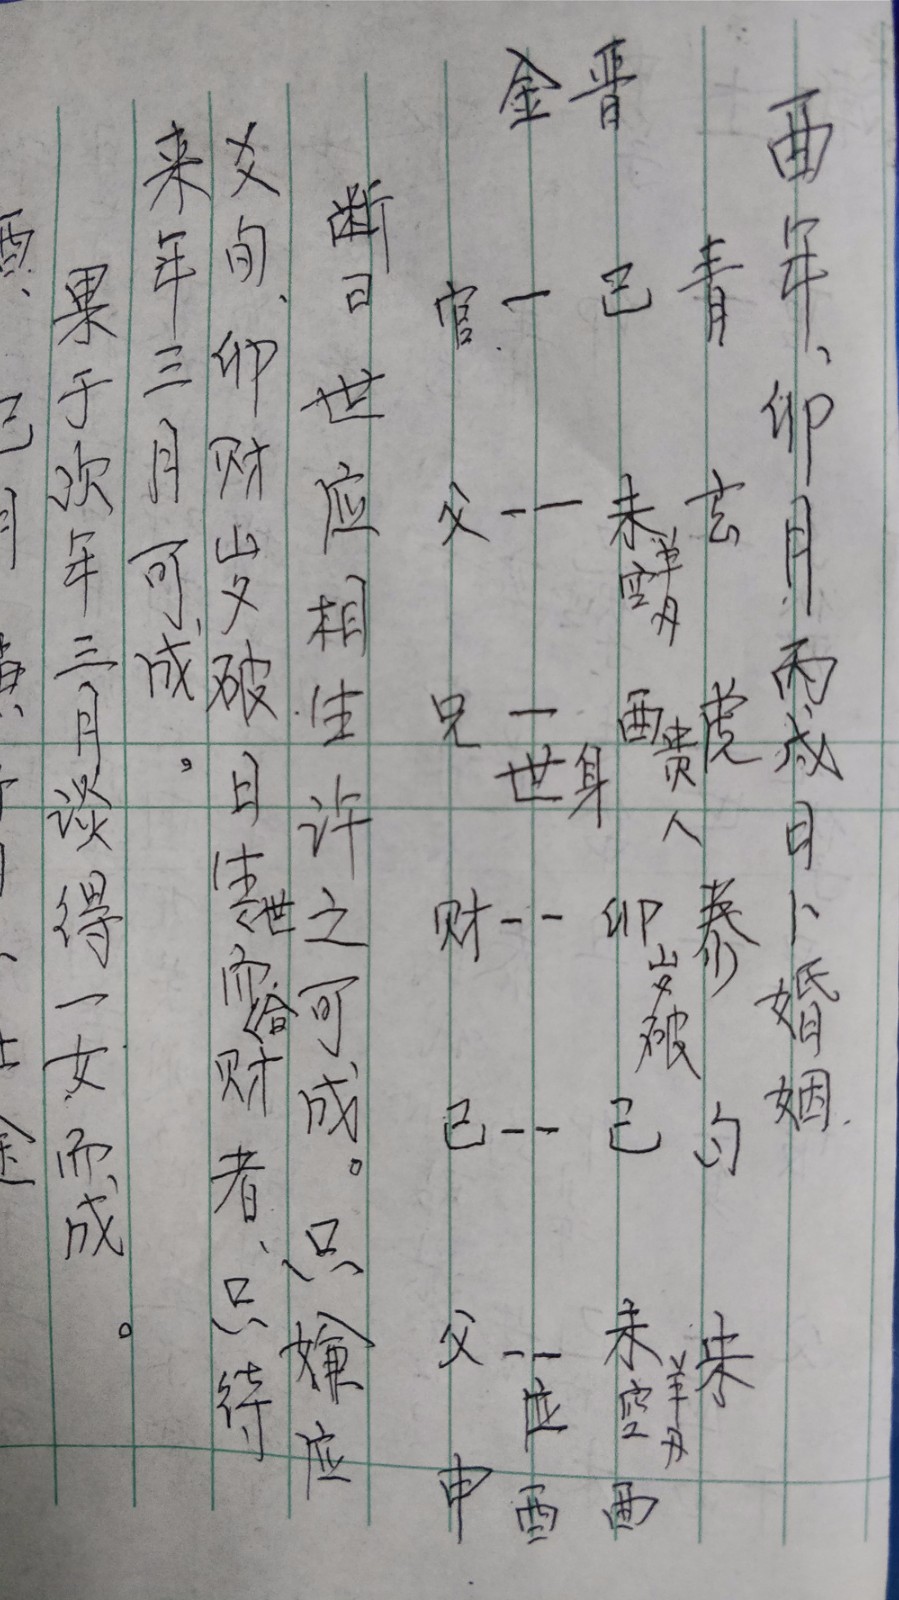 酉年、卯月丙戌日卜婚姻.
青 玄 虎 泰 勾 朱
巳 未 酉 卯 巳 未 酉
羊刃 空 贵人 岁破 羊刃 空
晋 身
金 世 应 酉
官 父 兄 财 巳 父 申
断曰世应相生许之可成。只嫌应
爻旬、卯财岁破 日生世而合财者、只待
来年三月可成。
果于次年三月谈得一女而成。